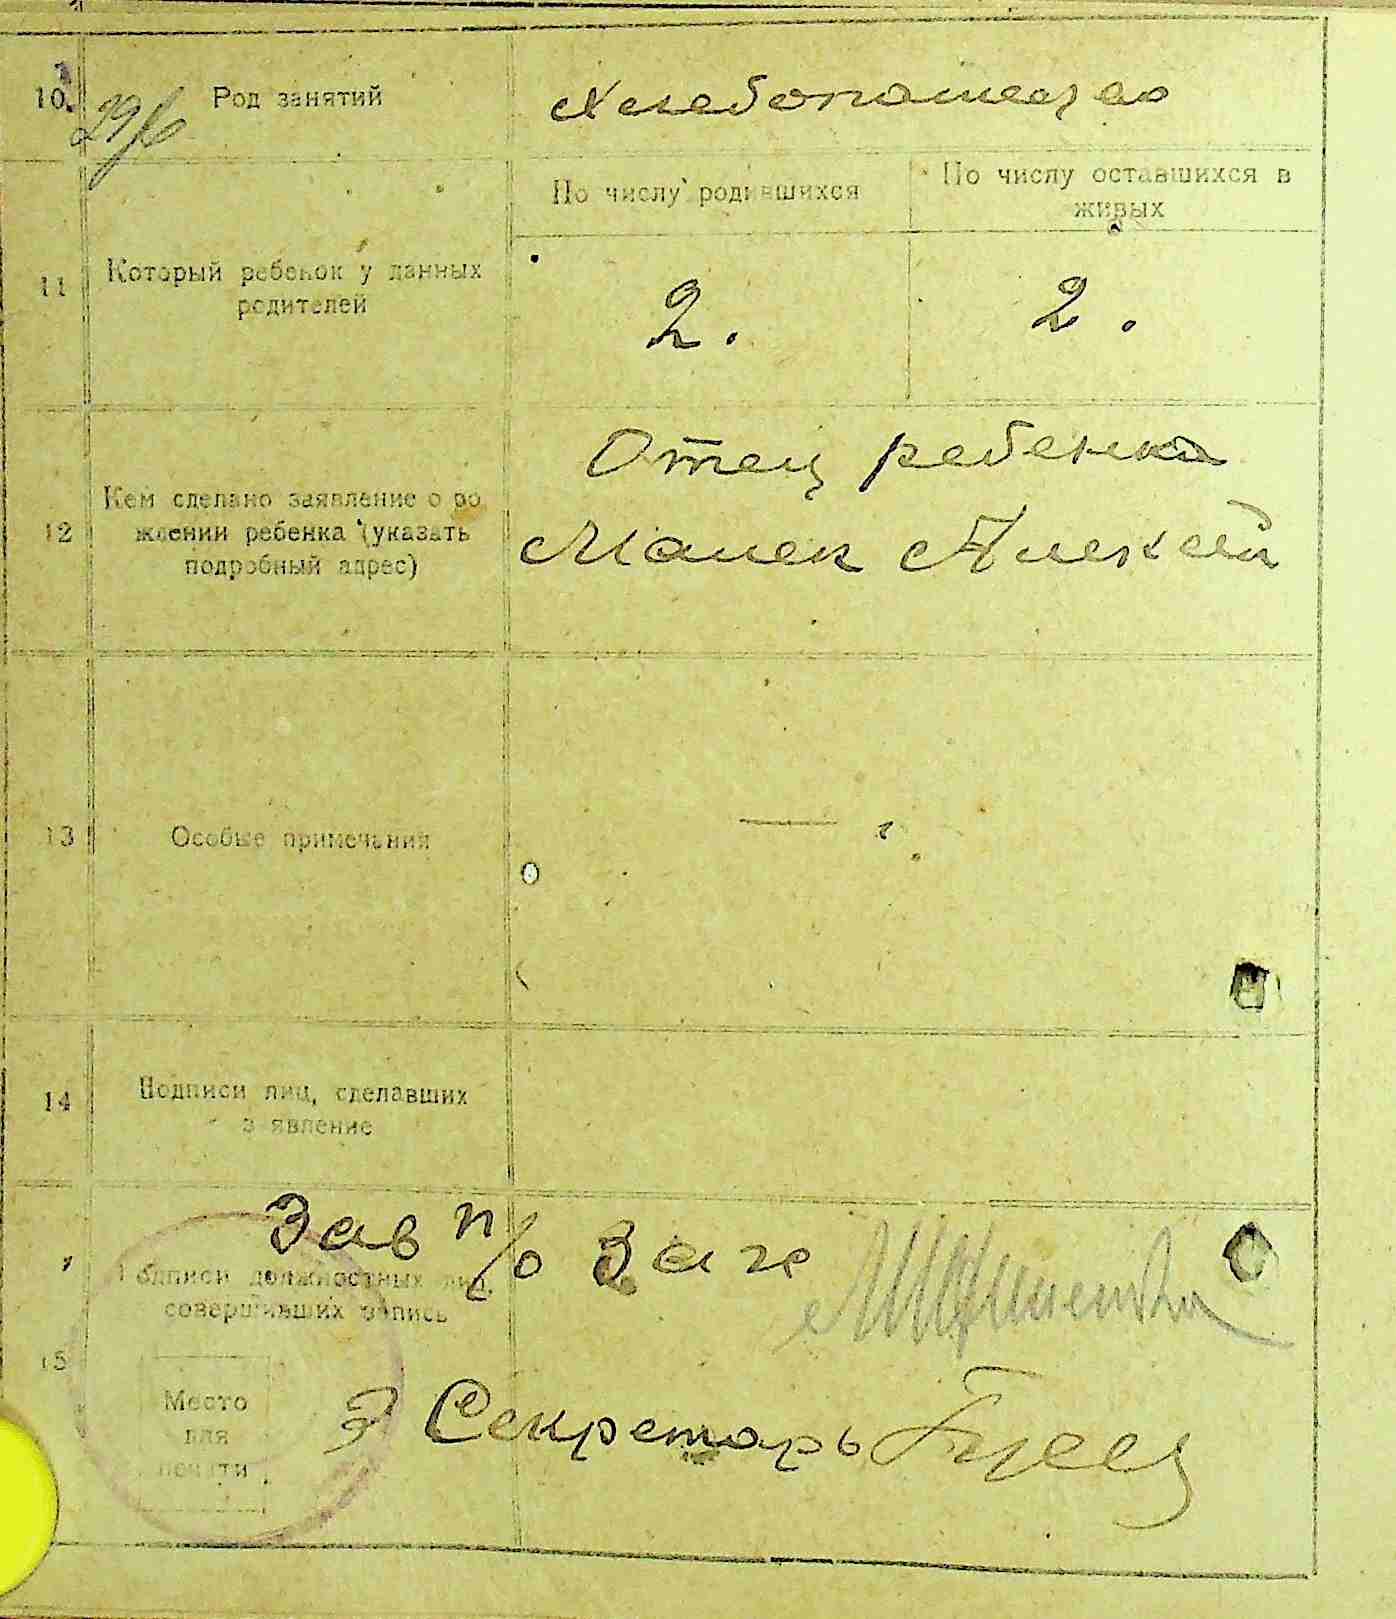 10. Род занятий Хлебопашец
По числу родившихся По числу оставшихся в
живых
11 Который ребенок у данных
родителей
2. 2.
Отец ребенка
12 Кем сделано заявление о ро
ждении ребенка (указать
подробный адрес)
Малек Алексей
13 Особые примечания —
14 Подписи лиц, сделавших
з явление
Зав п/о Загс
Подписи должностных лиц,
совершивших запись
15
Место
для
печати
Секретарь